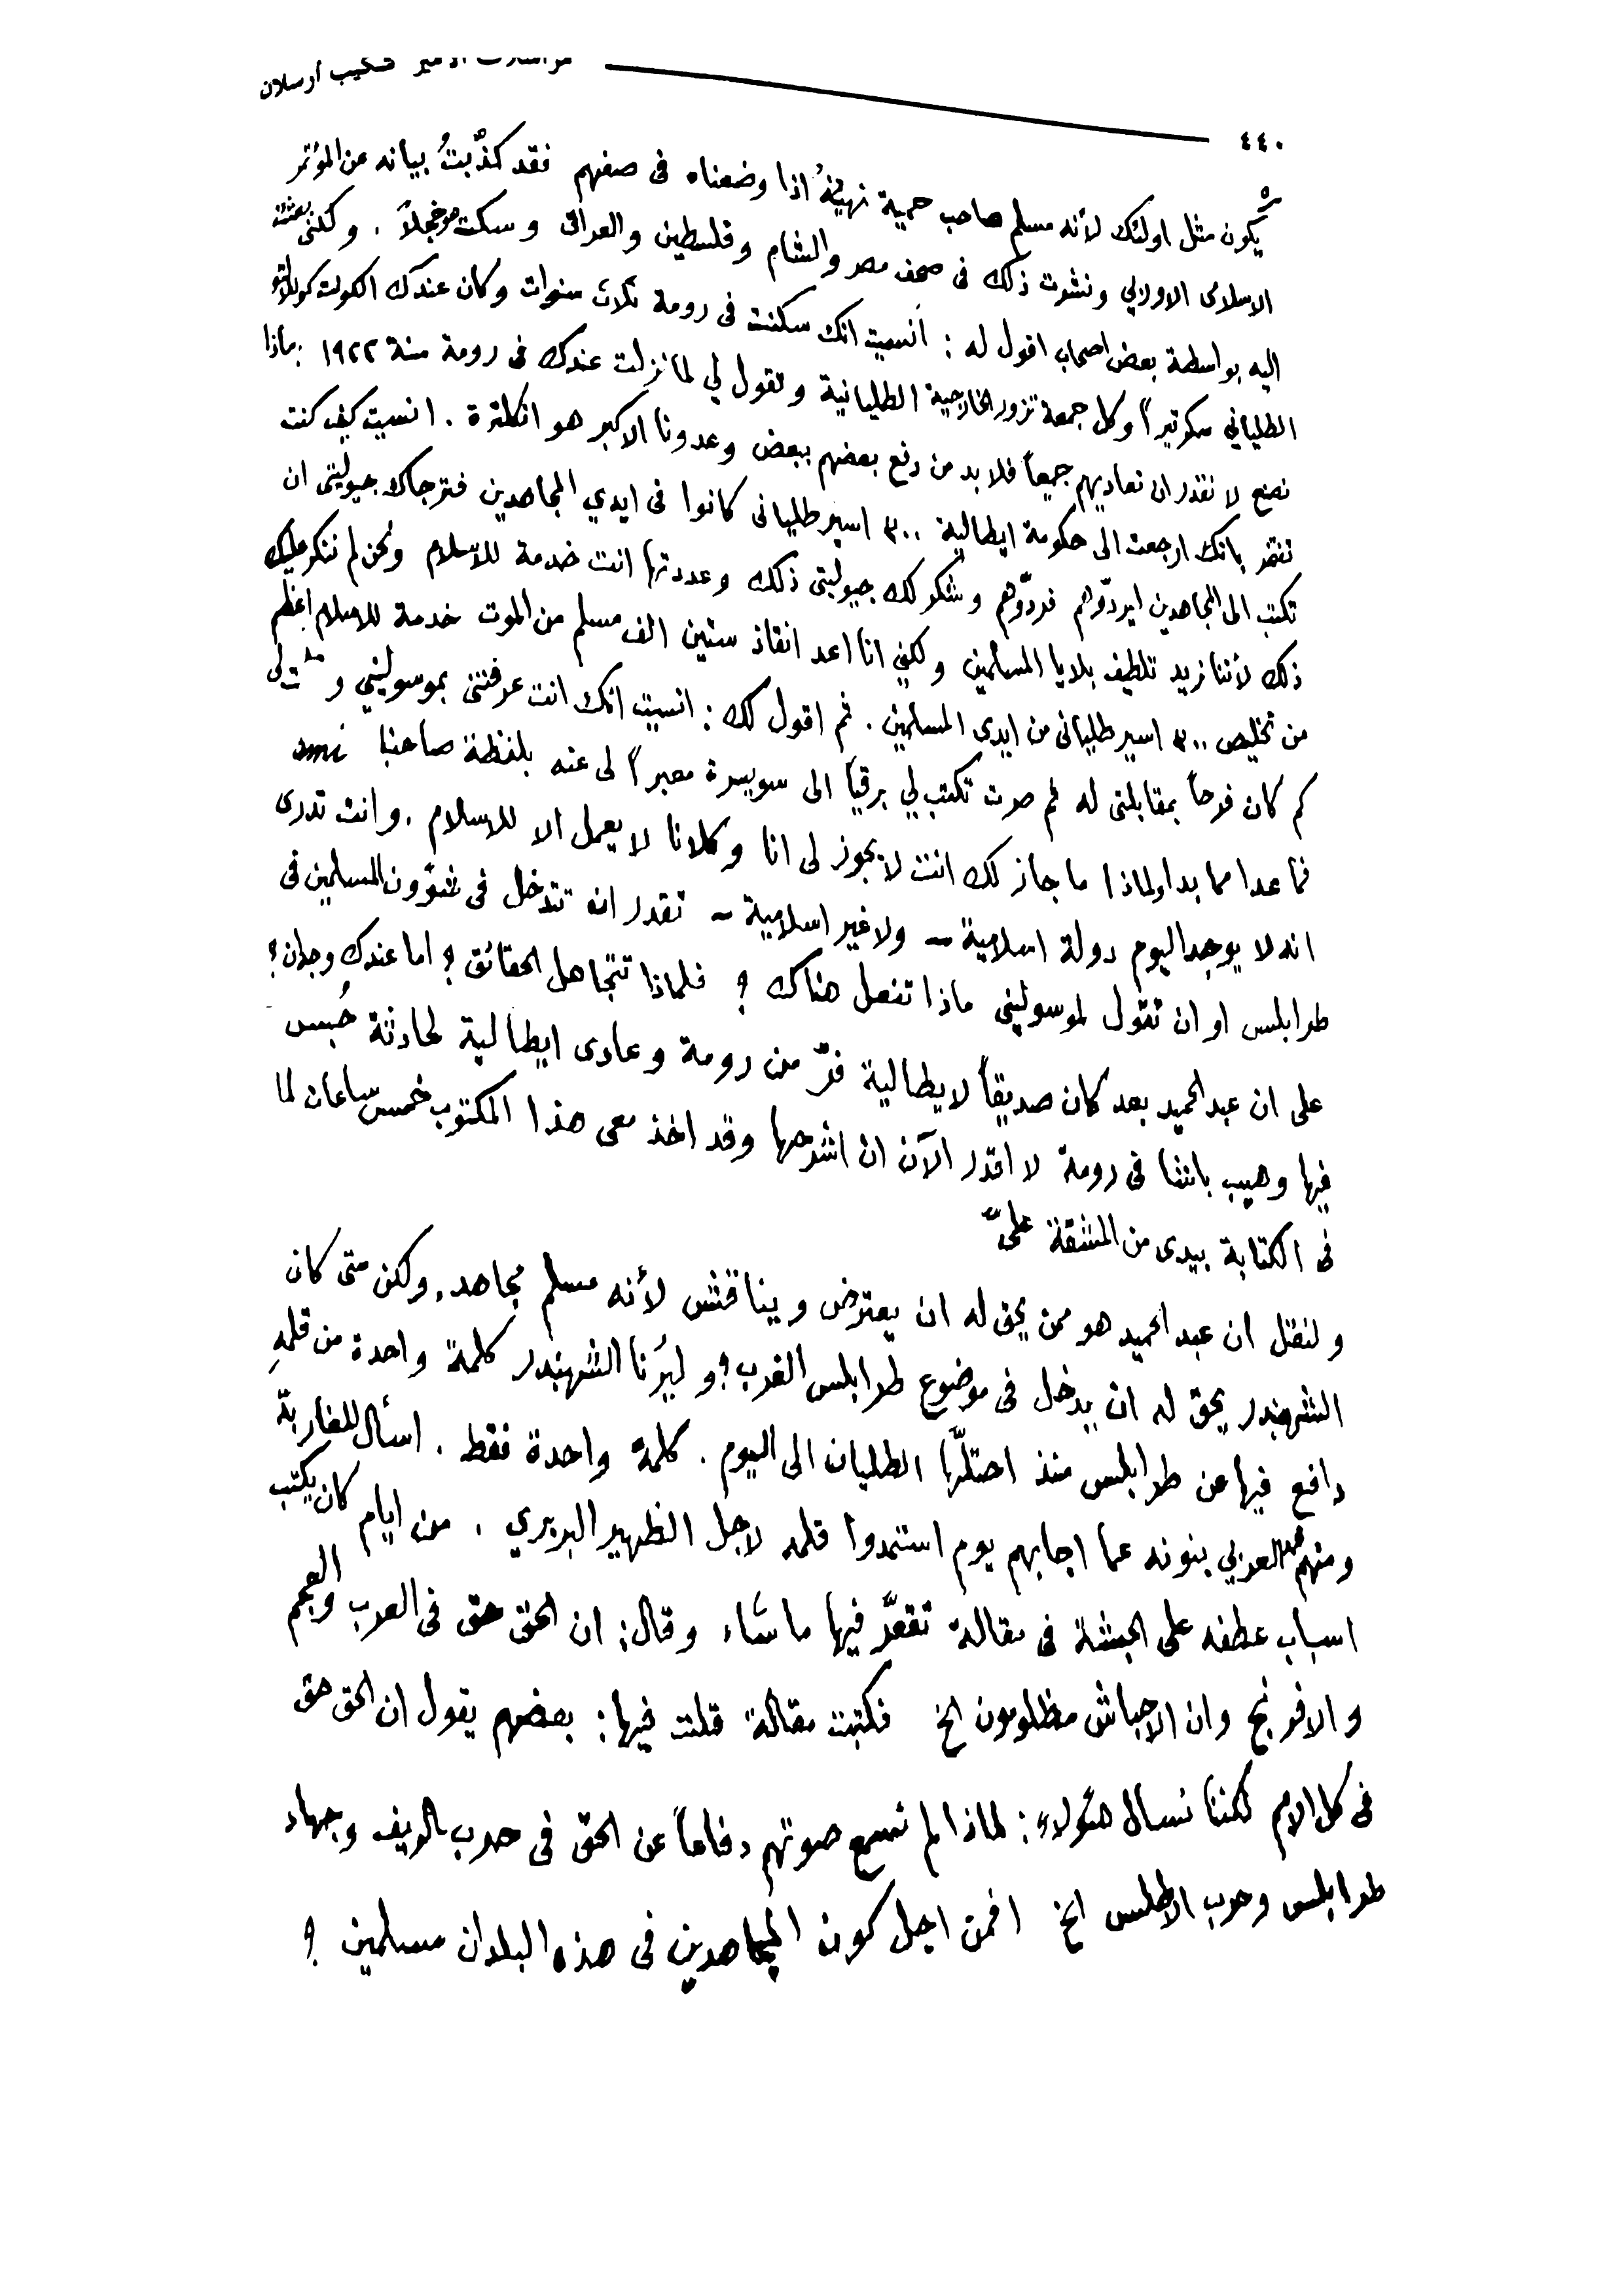 مراسلات الأمير شكيب أرسلان
٤٤٠
يكون مثل اولئك لأنه مسلم صاحب حمية اذا وضعناه فى صفهم فقد كذّبتُ بيانه عن المؤتمر
الاسلامى الاوربي ونشرت ذلك فى صحف مصر والشام وفلسطين والعراق وسكت خجلاً . ولكنى بعثت
اليه بواسطة بعض اصحاب اقول له : أنسيت انك سكنت فى رومة ثلاث سنوات وكان عندك الكونت
الطلياني سكرتيراً وكل جمعة تزور الخارجية الطليانية وتقول لي لما نزلت عندك فى رومة سنة ١٩٢٢ : ماذا
نصنع لا نقدر ان نعاديهم جميعاً فلا بد من دفع بعضهم ببعض وعدونا الاكبر هو انكلترة . انسيت كيف كنت
تفتخر بانك ارجعت الى حكومة ايطالية ٣٠٠ اسير طليانى كانوا فى ايدي المجاهدين فترجاك جيوليتى ان
تكتب الى المجاهدين ليردّوهم فردّوهم وشكر لك جيوليتى ذلك وعددتها انت خدمة للاسلام ونحن لم ننكر عليك
ذلك لأننا نريد تلطيف بلايا المسلمين ولكني انا اعد انقاذ ستين الف مسلم من الموت خدمة للاسلام اعظم
من تخليص ٣٠٠ اسير طليانى من ايدى المسلمين . ثم اقول لك : انسيت انك انت عرفتنى بموسوليني و لى
كم كان فرحاً بمقابلتى له ثم صرت تكتب لي برقياً الى سويسرة معبراً لى عنه بلفظة صاحبنا ami
فما عدا مما بدا ولماذا ما جاز لك انت لا يجوز لى انا وكلانا لا يعمل الا للاسلام . وانت تدرى
انه لا يوجد اليوم دولة اسلامية – ولا غير اسلامية – تقدر ان تتدخل فى شؤون المسلمين فى
طرابلس او ان تقول لموسولينى ماذا تفعل هناك ؟ فلماذا تتجاهل الحقائق ؟ اما عندك وجدان ؟
على ان عبد الحميد بعد كان صديقاً لايطالية فرّ من رومة وعادى ايطالية لحادثة حُبس
فيها وهيب باشا فى رومة لا اقدر الآن ان اشرحها وقد اخذ معى هذا المكتوب خمس ساعات لما
فى الكتابة بيدى من المشقة علىّ
ولنقل ان عبد الحميد هو ممن يحق له ان يعترض ويناقش لأنه مسلم مجاهد . ولكن متى كان
الشهبندر يحق له ان يدخل فى موضوع طرابلس الغرب ؟ وليُرنا الشهبندر كلمة واحدة من قلمهِ
دافع فيها عن طرابلس منذ احتلّها الطليان الى اليوم . كلمة واحدة فقط . اسأل المغاربة
ومنهم محمد العربي بنونه عما اجابهم يوم استنجدوا قلمه لاجل الظهير البربري . من ايام كان يكتب
اسباب عطفه على الحبشة فى مقالة تقعّر فيها ما شاء وقال : ان الحق حق فى العرب والعجم
والافرنج وان الاحباش مظلومون الخ فكتبت مقالة قلت فيها : بعضهم يقول ان الحق حق
فى كل الامم لكننا نسأل هؤلاء : لماذا لم نسمع صوتهم دفاعاً عن الحق فى حرب الريف وجهاد
طرابلس وحرب الاطلس الخ افمن اجل كون المجاهدين فى هذه البلدان مسلمين ؟